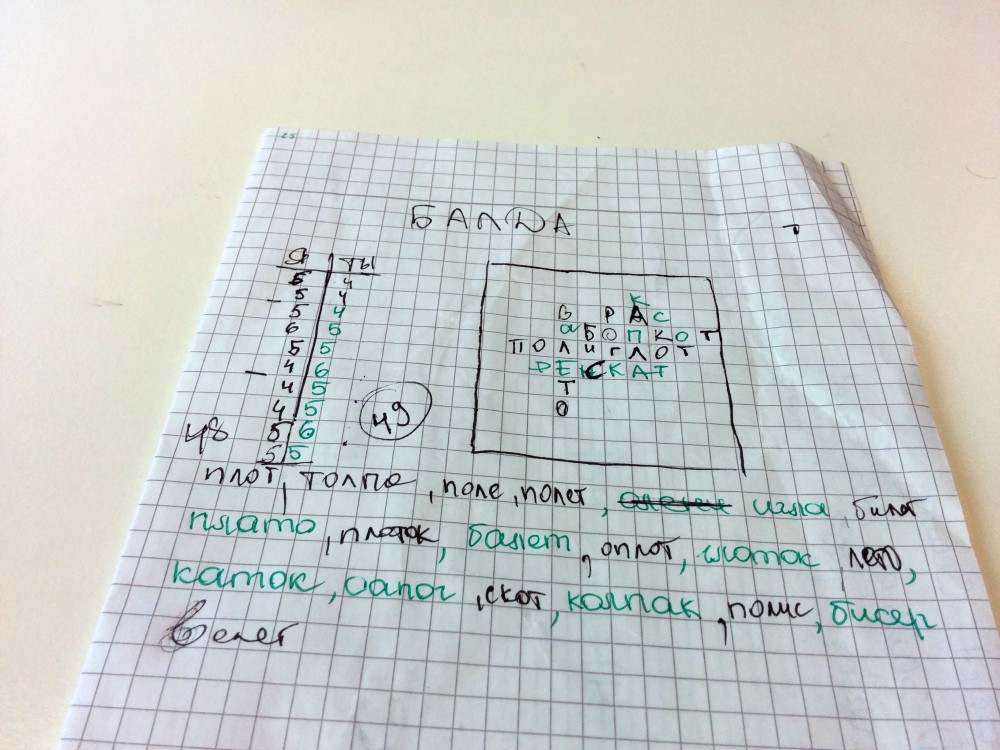 25
БАЛДА
т
Я ты
5 4
5 4
5 4
6 5
5 5
4 6
4 5
4 5
5 6
5 5
48
49
К
В Р А С
а Б О П К О Т
П О Л И Г Л О Т
Р Е К А Т
Т
О
плот, толпа, поле, полет, игла, билет
плато, платок, балет, оплот, лето,
каток, сапог, скот, колпак, полис, бисер